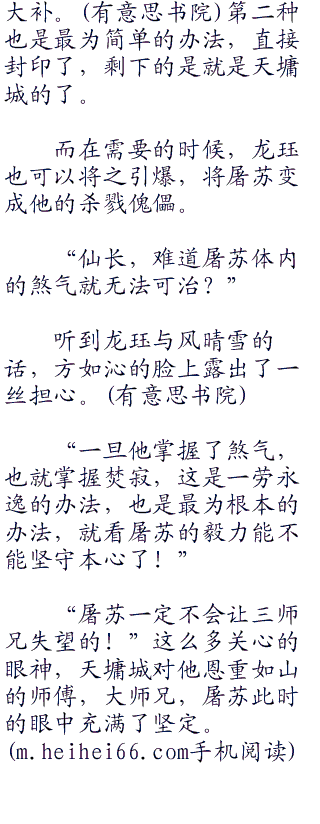 大补。(有意思书院)第二种
也是最为简单的办法，直接
封印了，剩下的是就是天墉
城的了。
而在需要的时候，龙珏
也可以将之引爆，将屠苏变
成他的杀戮傀儡。
“仙长，难道屠苏体内
的煞气就无法可治？”
听到龙珏与风晴雪的
话，方如沁的脸上露出了一
丝担心。(有意思书院)
“一旦他掌握了煞气，
也就掌握焚寂，这是一劳永
逸的办法，也是最为根本的
办法，就看屠苏的毅力能不
能坚守本心了！”
“屠苏一定不会让三师
兄失望的！”这么多关心的
眼神，天墉城对他恩重如山
的师傅，大师兄，屠苏此时
的眼中充满了坚定。
(m.heihei66.com手机阅读)